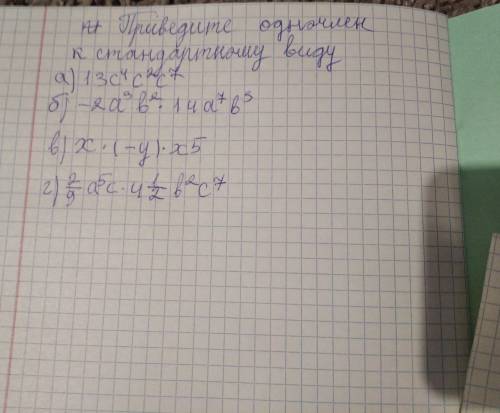 Приведите одночлен
к стандартному виду
а) 13c⁴c²c⁷
б) -2a³b²·14a⁷b³
в) x·(-y)·x5
г) 2/9 a⁵c·4 1/2 b²c⁷